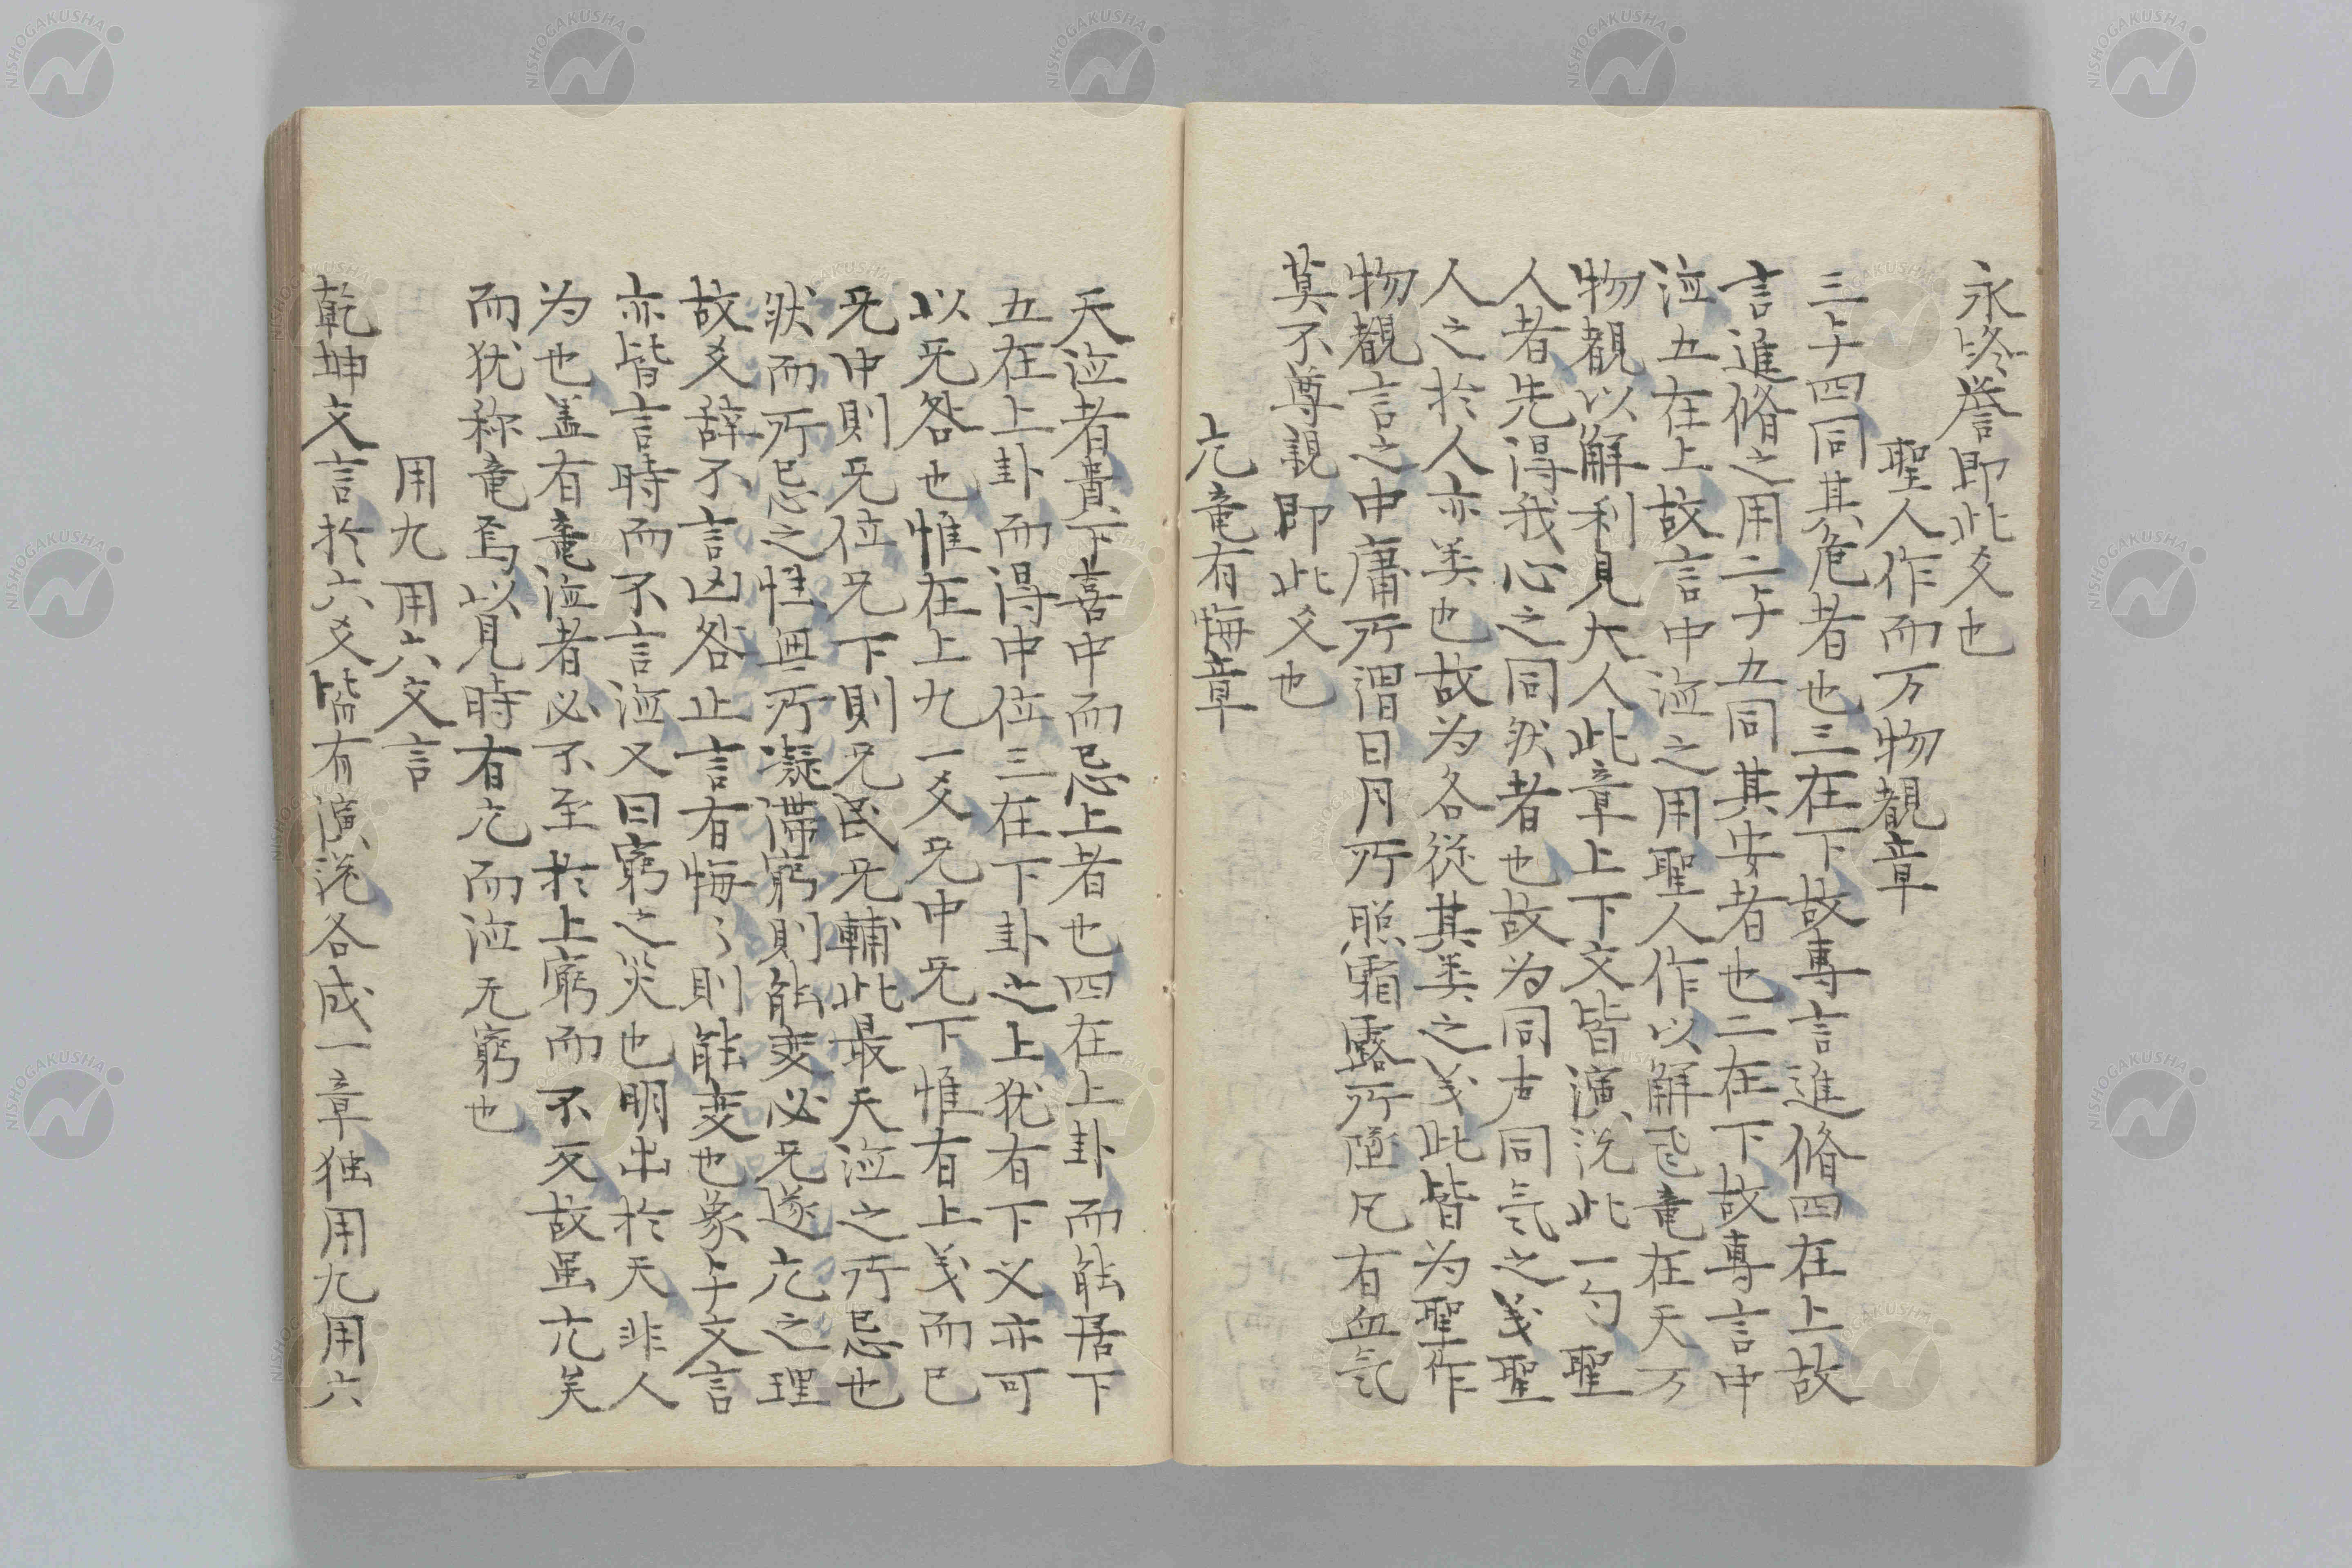 永終誉即此爻也
聖人作而万物覩章
三与四同其危者也三在下故專言進脩四在上故
言進脩之用二与五同其安者也二在下故專言中
泣五在上故言中泣之用聖人作以解飛竜在天万
物覩以解利見大人此章上下文皆演説此一句聖
人者先得我心之同然者也故为同声同气之義聖
人之於人亦类也故为各從其类之義此皆为聖作
物覩言之中庸所谓日月所照霜露所隊凡有血气
莫不尊親即此爻也
亢竜有悔章
天泣者貴下喜中而忌上者也四在上卦而能居下
五在上卦而得中位三在下卦之上犹有下义亦可
以无咎也惟在上九一爻无中无下惟有上義而已
无中則无位无下則无民无輔此最天泣之所忌也
然而所忌之性無所凝滞窮則能変必无遂亢之理
故爻辞不言凶咎止言有悔〻則能変也象与文言
亦皆言時而不言泣又曰窮之災也明出於天非人
为也盖有竜泣者必不至於上窮而不反故虽亢矣
而犹称竜焉以見時有亢而泣无窮也
用九用六文言
乾坤文言於六爻皆有演説各成一章独用九用六
NISHOGAKUSHA